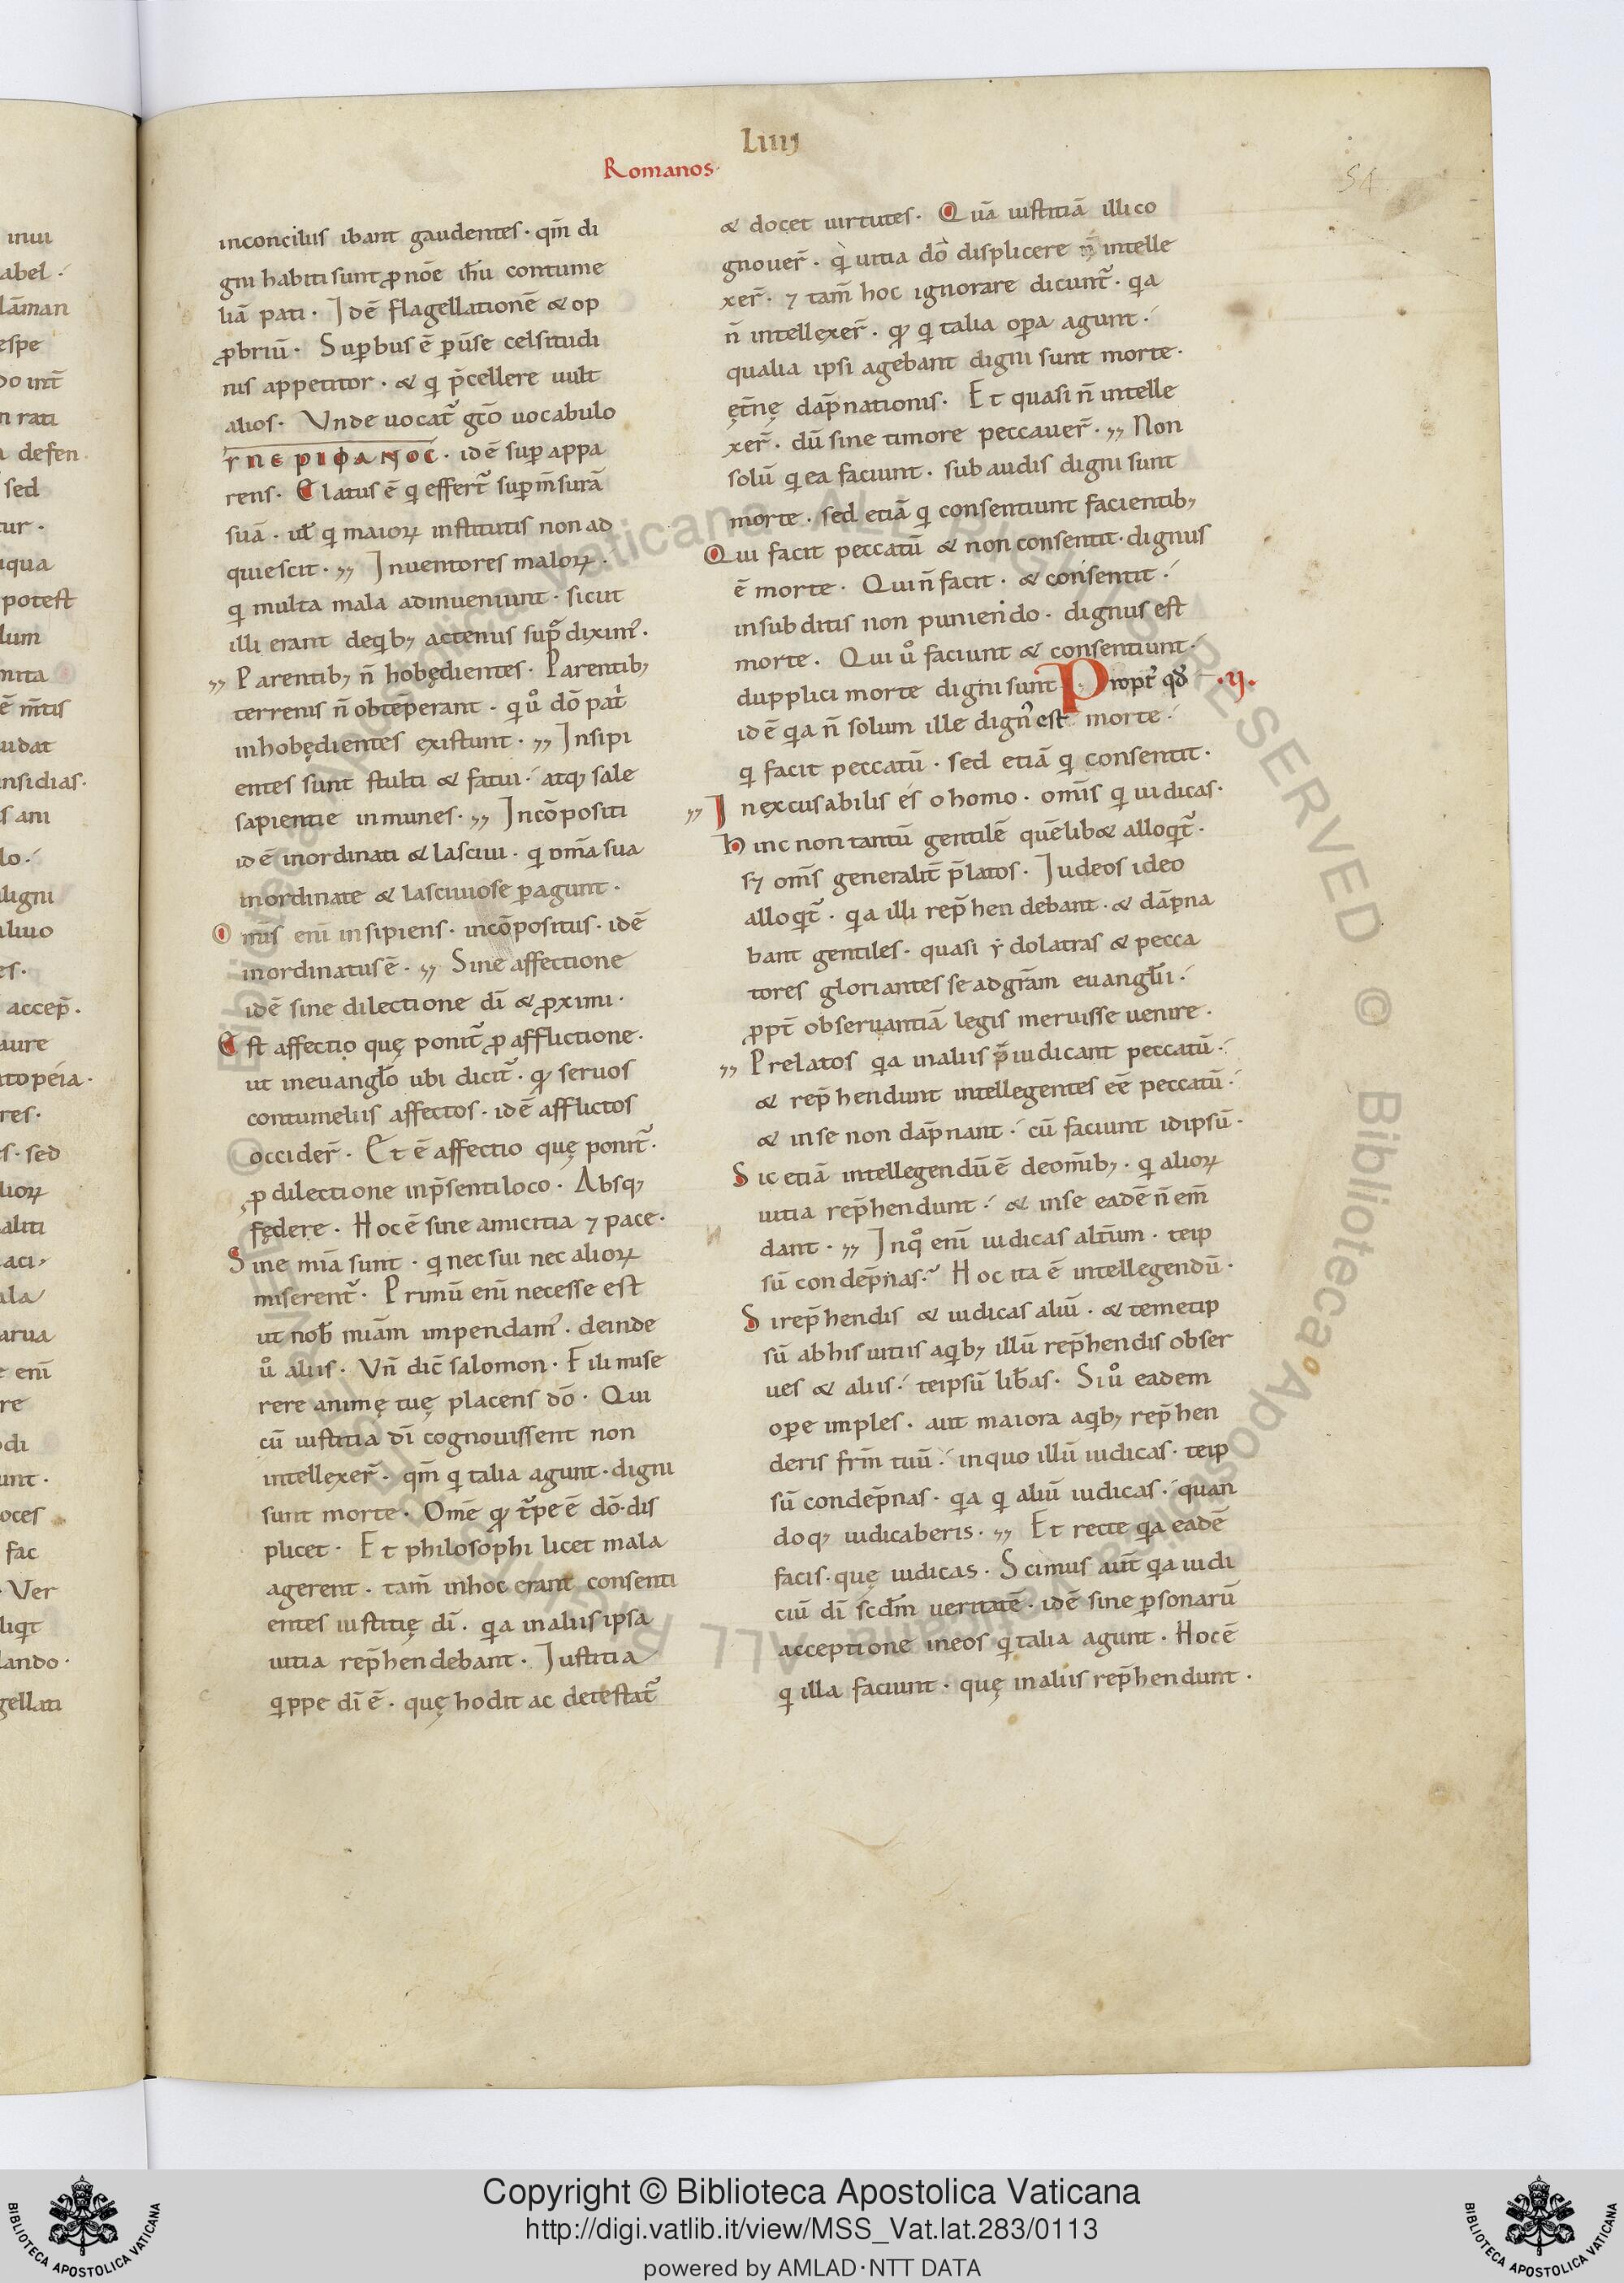 Liiij
Romanos·
54
inconciliis ibant gaudentes · qm̄ di
gni habiti sunt ꝓ nōe ih̄u contume
liā pati · Idē flagellationē & op
ꝓbriū · Supbus ē puse celsitudi
nis appetitor · & q p̄cellere uult
alios · Vnde uocat gto uocabulo
idē sup appa
rens · Elatus ē q effert sup m̄surā
suā · ul q maioꝝ institutis non ad
quiescit · ,, Inuentores maloꝝ ·
q multa mala adinueniunt · sicut
illi erant deqb; actenus sup dixim ·
,, Parentib; n̄ hobędientes · Parentib;
terrenis n̄ obtēperant · q uº dō pat
inhobędientes existunt · ,, Insipi
entes sunt stulti & fatui · atq; sale
sapientie inmunes · ,, Incōpositi
idē inordinati & lasciui · q om̄a sua
inordinate & lasciuiose pagunt ·
Omīs enī insipiens · incōpositus · idē
inordinatus ē · ,, Sine affectione
idē sine dilectione dī & ꝓximi ·
Est affectio quę ponit ꝓ afflictione ·
ut ineuanglo ubi dicit · qꝫ seruos
contumeliis affectos · idē afflictos
occider̄ · Et ē affectio quę ponit ·
ꝓ dilectione inp̄senti loco · Absq;
fędere · Hoc ē sine amicitia ⁊ pace ·
Sine mīa sunt · q nec sui nec alioꝝ
miserent · Primū enī necesse est
ut nob miām impendam · deinde
uº aliis · Vn̄ dic̄ salomon · Fili mise
rere animę tuę placens dō · Qui
cū iustitia dī cognouissent non
intellexer̄ · qm̄ q talia agunt · digni
sunt morte · Om̄e qꝫ tpe ē dō · dis
plicet · Et philosophi licet mala
agerent · tam̄ inhoc erant consenti
entes iustitię dī · qa inaliis ipsa
uitia rep̄hendebant · Iustitia
qippe dī ē · quę hodit ac detestat
& docet uirtutes · Quā iustitiā illi co
gnouer̄ · q uitia dō displicere n̄ intelle
xer̄ · ⁊ tam̄ hoc ignorare dicunt · qa
n̄ intellexer̄ · qꝫ q talia opa agunt ·
qualia ipsi agebant digni sunt morte ·
ęt̄nę dap̄nationis · Et quasi n̄ intelle
xer̄ · dū sine timore peccauer̄ · ,, Non
solū q ea faciunt · sub audis digni sunt
morte · sed etiā q consentiunt facientib;
Qui facit peccatū & non consentit · dignus
ē morte · Qui n̄ facit · & consentit ·
insubditis non puniendo · dignus est
morte · Qui uº faciunt & consentiunt ·
dupplici morte digni sunt Propt qd · ij ·
idē qa n̄ solum ille dign est morte ·
q facit peccatū · sed etiā q consentit ·
,, Inexcusabilis es o homo · omīs q iudicas ·
Hinc non tantū gentilē quēlib& alloqt ·
s; om̄s generalit p̄latos · Iudeos ideo
alloqt · qa illi rep̄hendebant · & dāpna
bant gentiles · quasi ydolatras & pecca
tores gloriantes se ad gram̄ euanglii ·
ppt obseruantiā legis meruisse uenire ·
,, Prelatos qa inaliis p̄iudicant peccatū ·
& rep̄hendunt intellegentes eē peccatū ·
& inse non dap̄nant · cū faciunt idipsū ·
Sic etiā intellegendū ē deomīb; · q alioꝝ
uitia rep̄hendunt · & inse eadē n̄ em̄
dant · ,, Inqº enī iudicas alt̄um · teip
sū condep̄nas · Hoc ita ē intellegendū ·
Si rep̄hendis & iudicas aliū · & temetip
sū abhis uitiis aqb; illū rep̄hendis obser
ues & aliis · teipsū lib̄as · Si uº eadem
ope imples · aut maiora aqb; rep̄hen
deris fr̄m tuū · inquo illū iudicas · teip
sū condep̄nas · qa q aliū iudicas · quan
doq; iudicaberis · ,, Et recte qa eadē
facis · quę iudicas · Scimus aut̄ qa iudi
ciū dī scdm̄ ueritatē · idē sine psonarū
acceptione ineos q talia agunt · Hoc ē
q illa faciunt · quę inaliis rep̄hendunt ·
Copyright © Biblioteca Apostolica Vaticana
http://digi.vatlib.it/view/MSS_Vat.lat.283/0113
powered by AMLAD·NTT DATA
BIBLIOTECA APOSTOLICA VATICANA
BIBLIOTECA APOSTOLICA VATICANA